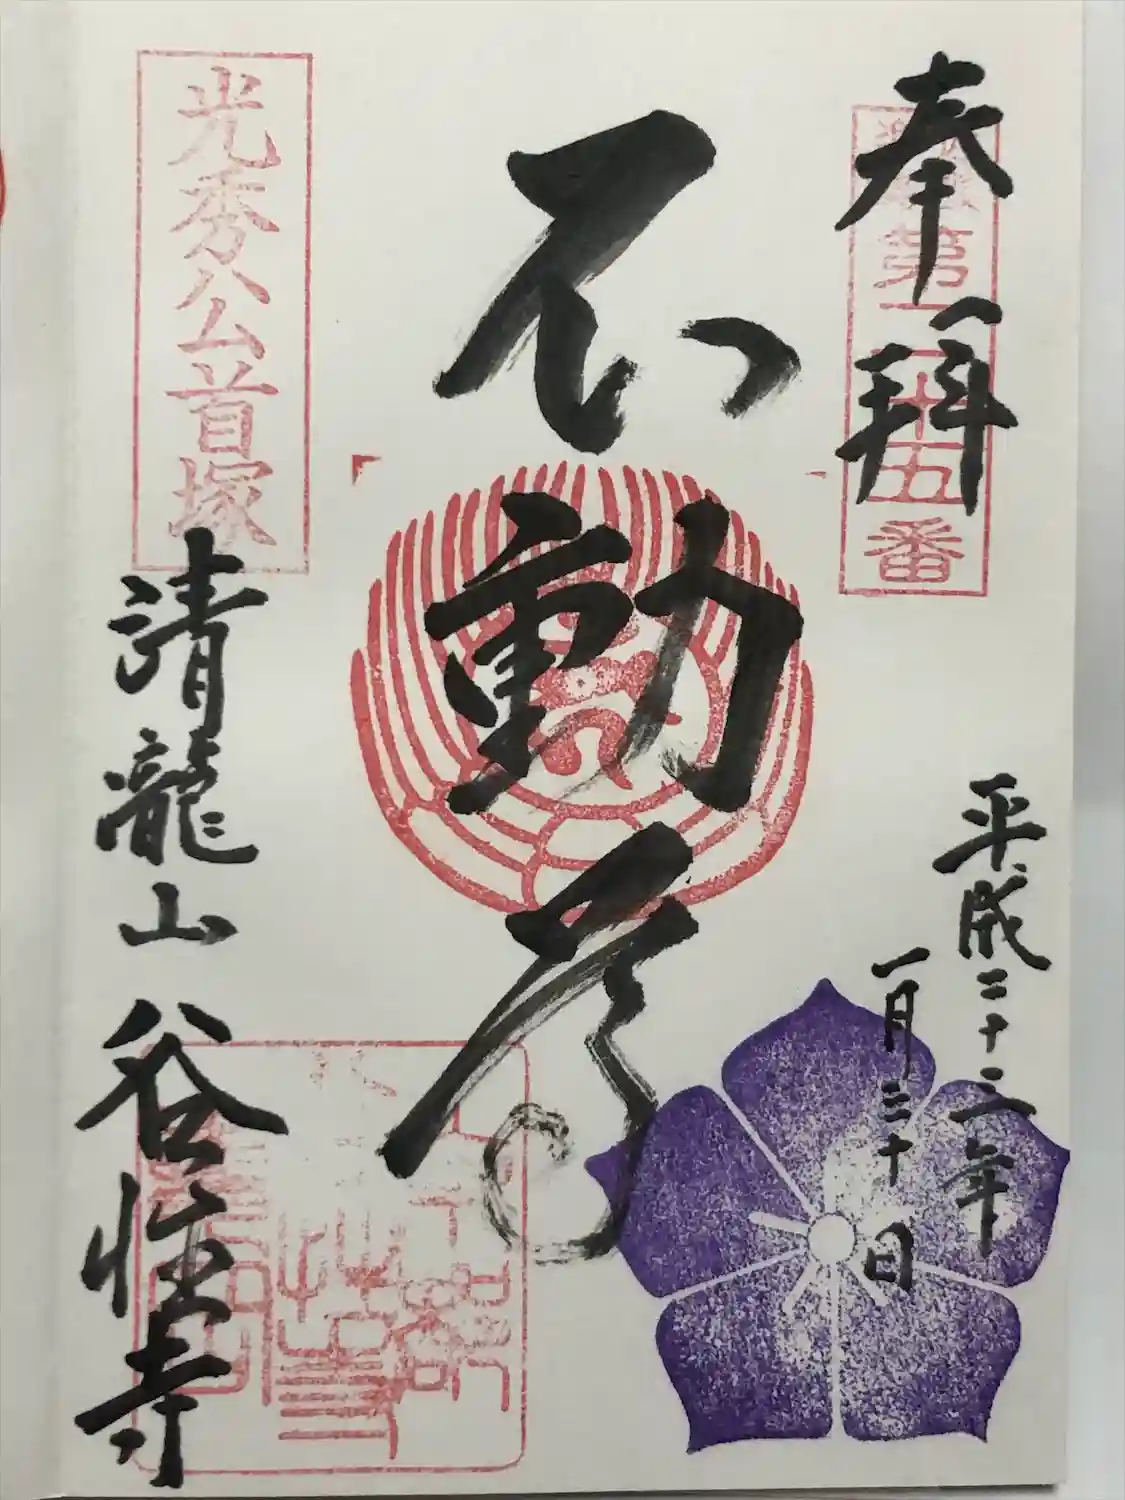 奉拝
第二十五番
平成二十三年
一月三十日
不動尊
光秀公首塚
清龍山 谷性寺